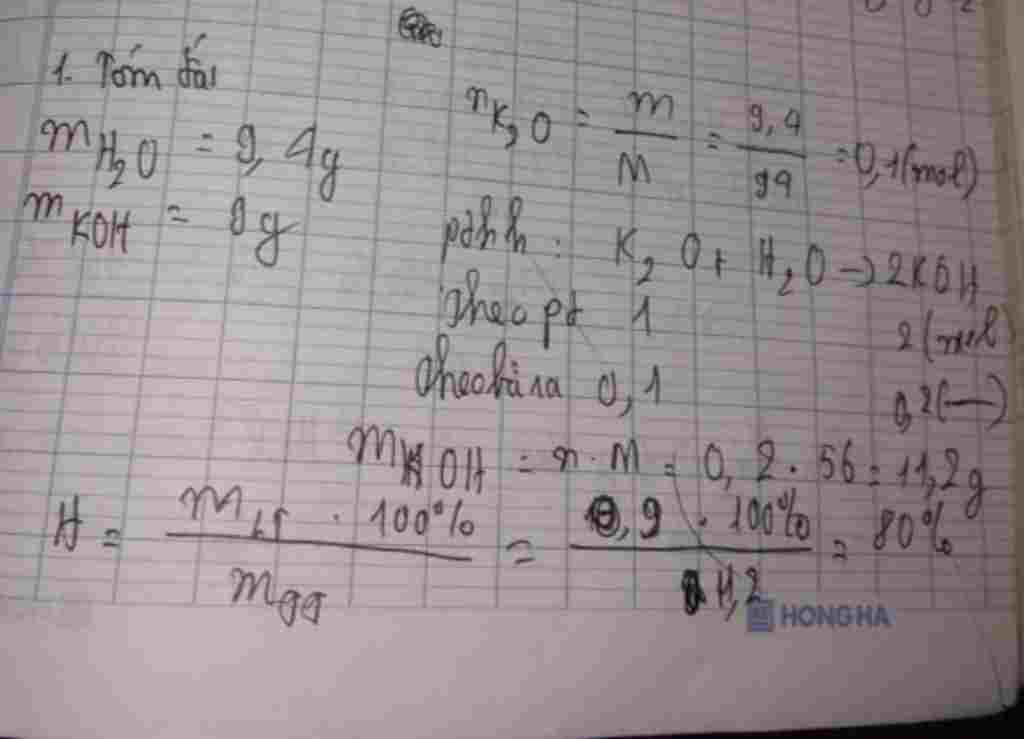 1. Tóm tắt
m H₂O = 9,4g
m KOH = 9g
n K₂O = m/M = 9,4/94 = 0,1 (mol)
pthh: K₂O + H₂O → 2KOH
Theo pt 1 2 (mol)
Theo bài ra 0,1 0,2 (—)
m KOH = n . M = 0,2 . 56 = 11,2g
H = m . 100% / m = 9 . 100% / 11,2 = 80%
HONG HA